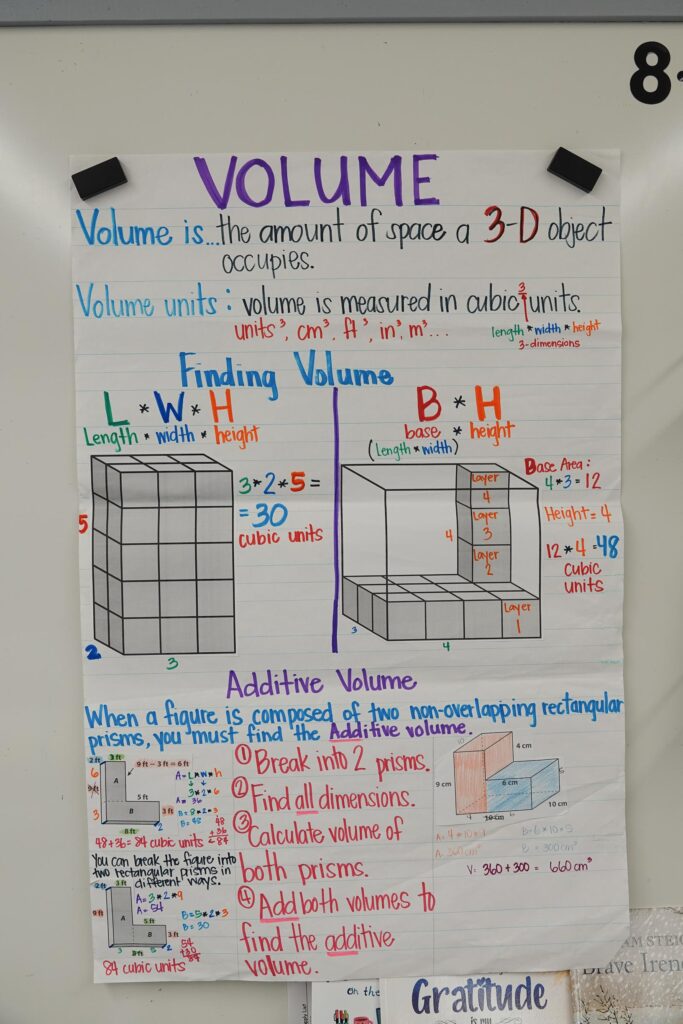 8-
VOLUME
Volume is... the amount of space a 3-D object
occupies.
Volume units: volume is measured in cubic units.
3
units³, cm³, ft³, in³, m³...
length * width * height
3-dimensions
Finding Volume
L * W * H
Length * width * height
5
2
3
3*2*5 =
= 30
cubic units
B * H
base * height
(length * width)
Layer
4
Layer
3
Layer
2
Layer
1
4
3
4
Base Area:
4*3=12
Height = 4
12*4=48
cubic
units
Additive Volume
When a figure is composed of two non-overlapping rectangular
prisms, you must find the Additive volume.
2 ft
3 ft
9 ft – 3 ft = 6 ft
6
9 ft
A
5 ft
3
B
8 ft
2
A=L*w*h
3*2*6
A= 36
B=8*2*3
B=48
48
+36
84
48+36= 84 cubic units
You can break the figure into
two rectangular prisms in
different ways.
2 ft
3 ft
9 ft
A
5 ft
B
3 ft
3
8 ft
5
2
A=3*2*9
A=54
B=5*2*3
B=30
54
+30
84
84 cubic units
① Break into 2 prisms.
② Find all dimensions.
③ Calculate volume of
both prisms.
④ Add both volumes to
find the additive
volume.
10
4 cm
9 cm
6 cm
5
10 cm
4
10 cm
6
B=6*10*5
A: 360cm³
B: 300cm³
V: 360+300 = 660cm³
on the
Gratitude
is my
AM STEIG
Brave Irene